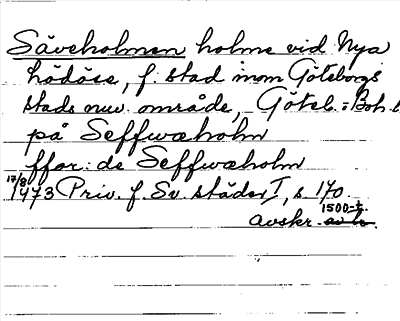 Säveholmen holme vid Nya
Lödöse, f. stad inom Göteborgs
stads nuv. område, Göteb.=Boh. l
på Seffwæholm
ffor: de Seffwæholm
17/8 1473 Priv. f. Sv. städer I, s. 170.
1500-t.
avskr.